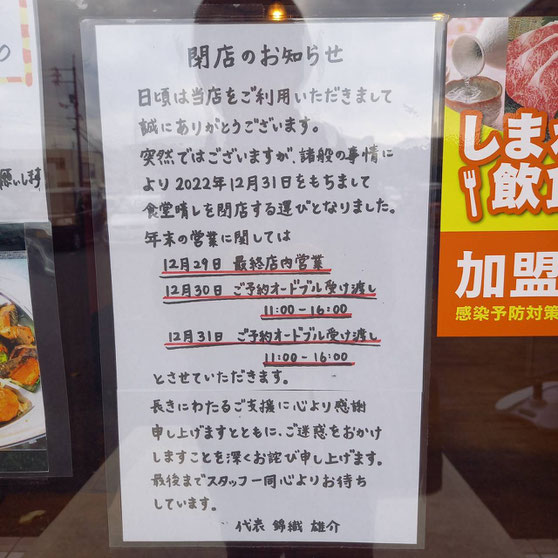 閉店のお知らせ
日頃は当店をご利用いただきまして
誠にありがとうございます。
突然ではございますが、諸般の事情に
より2022年12月31日をもちまして
食堂晴しを閉店する運びとなりました。
年末の営業に関しては
12月29日 最終店内営業
12月30日 ご予約オードブル受け渡し
11:00-16:00
12月31日 ご予約オードブル受け渡し
11:00-16:00
とさせていただきます。
長きにわたるご支援に心より感謝
申し上げますとともに、ご迷惑をおかけ
しますことを深くお詫び申し上げます。
最後までスタッフ一同心よりお待ち
しています。
代表 錦織 雄介
しま
飲食
加盟
感染予防対策